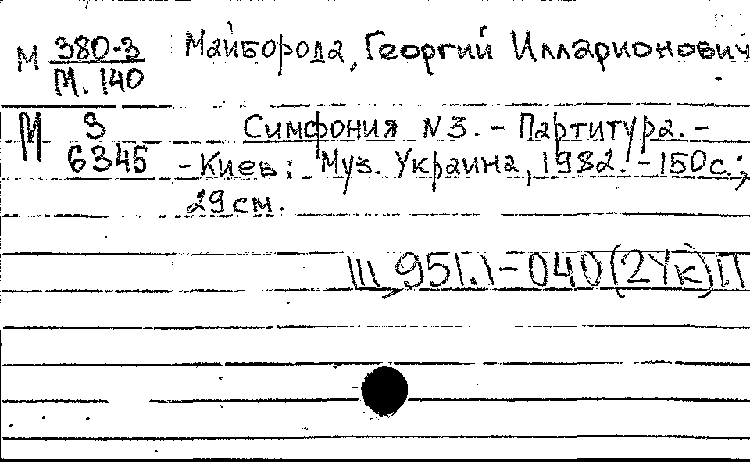 М 380-3 Майборода, Георгий Илларионович
М. 140
М 3 Симфония N 3. - Партитура. -
6345 - Киев: Муз. Украина, 1982. - 150 с.;
29 см.
951.1-040(2Ук)